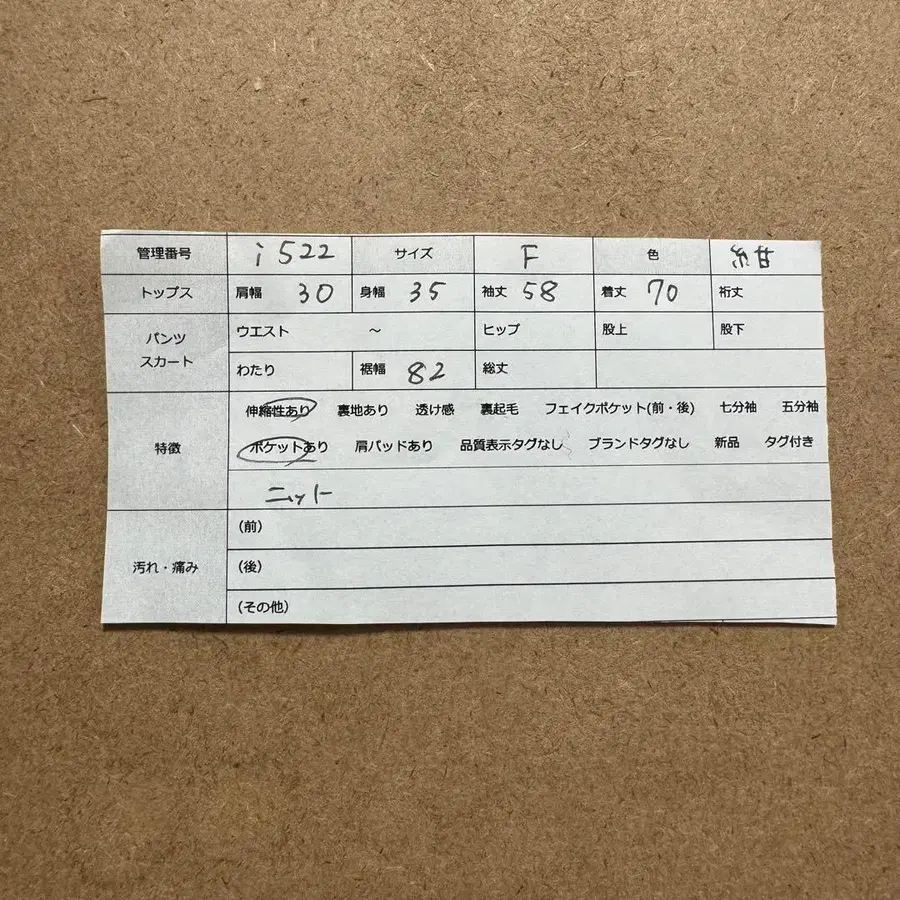 管理番号 i522 サイズ F 色 紺
トップス 肩幅 30 身幅 35 袖丈 58 着丈 70 裄丈
パンツ スカート ウエスト ～ ヒップ 股上 股下
わたり 裾幅 82 総丈
特徴 伸縮性あり 裏地あり 透け感 裏起毛 フェイクポケット(前・後) 七分袖 五分袖
ポケットあり 肩パッドあり 品質表示タグなし ブランドタグなし 新品 タグ付き
ニット
汚れ・痛み (前)
(後)
(その他)